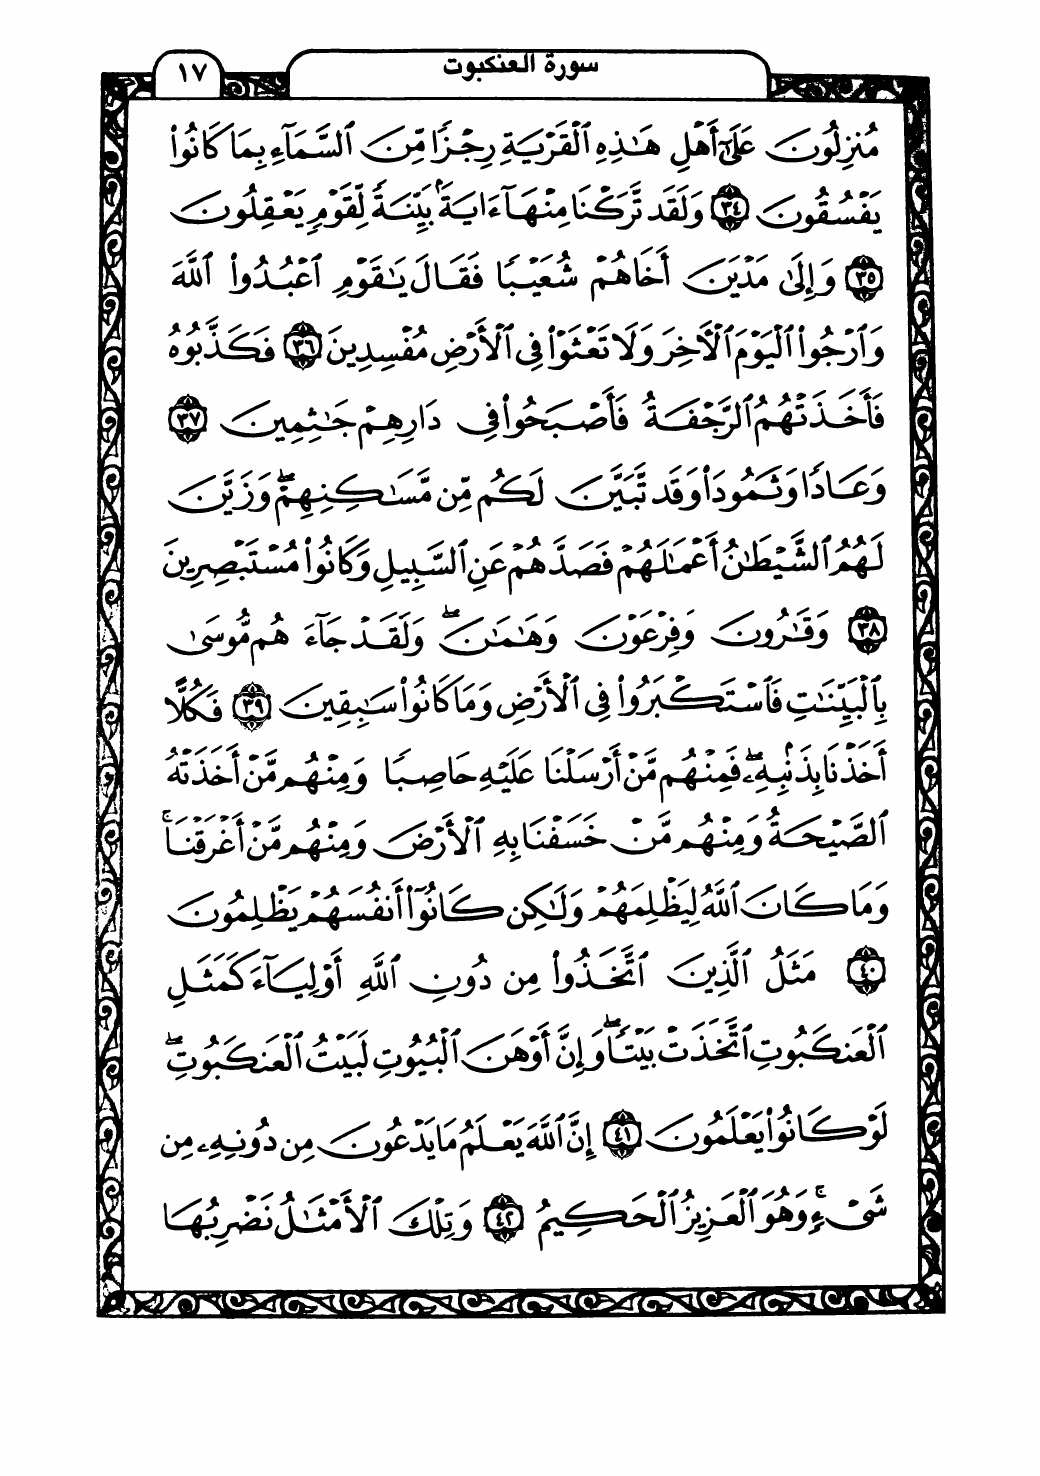 سورة العنكبوت
١٧
مُنزِلُونَ عَلَىٰٓ أَهْلِ هَٰذِهِ ٱلْقَرْيَةِ رِجْزًا مِّنَ ٱلسَّمَآءِ بِمَا كَانُوا۟
يَفْسُقُونَ ٣٤ وَلَقَد تَّرَكْنَا مِنْهَآ ءَايَةًۢ بَيِّنَةً لِّقَوْمٍ يَعْقِلُونَ
٣٥ وَإِلَىٰ مَدْيَنَ أَخَاهُمْ شُعَيْبًا فَقَالَ يَٰقَوْمِ ٱعْبُدُوا۟ ٱللَّهَ
وَٱرْجُوا۟ ٱلْيَوْمَ ٱلْأَخِرَ وَلَا تَعْثَوْا۟ فِى ٱلْأَرْضِ مُفْسِدِينَ ٣٦ فَكَذَّبُوهُ
فَأَخَذَتْهُمُ ٱلرَّجْفَةُ فَأَصْبَحُوا۟ فِى دَارِهِمْ جَٰثِمِينَ ٣٧
وَعَادًا وَثَمُودَا۟ وَقَد تَّبَيَّنَ لَكُم مِّن مَّسَٰكِنِهِمْ ۖ وَزَيَّنَ
لَهُمُ ٱلشَّيْطَٰنُ أَعْمَٰلَهُمْ فَصَدَّهُمْ عَنِ ٱلسَّبِيلِ وَكَانُوا۟ مُسْتَبْصِرِينَ
٣٨ وَقَٰرُونَ وَفِرْعَوْنَ وَهَٰمَٰنَ ۖ وَلَقَدْ جَآءَهُم مُّوسَىٰ
بِٱلْبَيِّنَٰتِ فَٱسْتَكْبَرُوا۟ فِى ٱلْأَرْضِ وَمَا كَانُوا۟ سَٰبِقِينَ ٣٩ فَكُلًّا
أَخَذْنَا بِذَنۢبِهِۦ ۖ فَمِنْهُم مَّنْ أَرْسَلْنَا عَلَيْهِ حَاصِبًا وَمِنْهُم مَّنْ أَخَذَتْهُ
ٱلصَّيْحَةُ وَمِنْهُم مَّنْ خَسَفْنَا بِهِ ٱلْأَرْضَ وَمِنْهُم مَّنْ أَغْرَقْنَا ۚ
وَمَا كَانَ ٱللَّهُ لِيَظْلِمَهُمْ وَلَٰكِن كَانُوٓا۟ أَنفُسَهُمْ يَظْلِمُونَ
٤٠ مَثَلُ ٱلَّذِينَ ٱتَّخَذُوا۟ مِن دُونِ ٱللَّهِ أَوْلِيَآءَ كَمَثَلِ
ٱلْعَنكَبُوتِ ٱتَّخَذَتْ بَيْتًا ۖ وَإِنَّ أَوْهَنَ ٱلْبُيُوتِ لَبَيْتُ ٱلْعَنكَبُوتِ ۖ
لَوْ كَانُوا۟ يَعْلَمُونَ ٤١ إِنَّ ٱللَّهَ يَعْلَمُ مَا يَدْعُونَ مِن دُونِهِۦ مِن
شَىْءٍ ۚ وَهُوَ ٱلْعَزِيزُ ٱلْحَكِيمُ ٤٢ وَتِلْكَ ٱلْأَمْثَٰلُ نَضْرِبُهَا